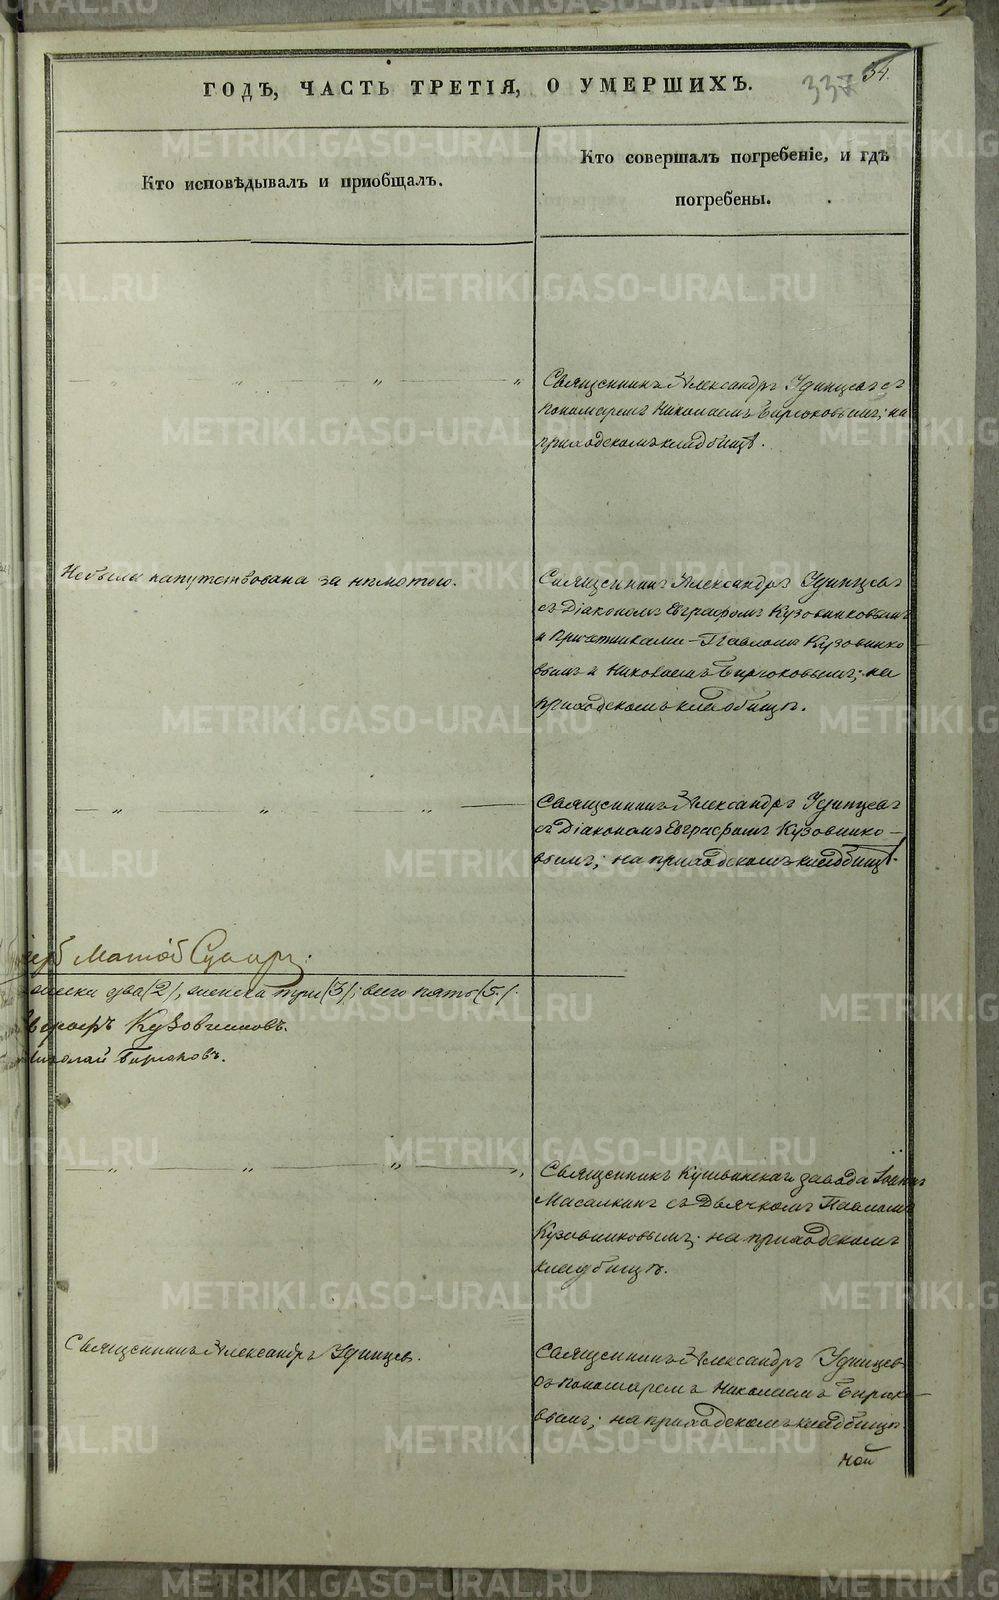 ГОДЪ, ЧАСТЬ ТРЕТІЯ, О УМЕРШИХЪ.
337 34.
Кто исповѣдывалъ и пріобщалъ.
Кто совершалъ погребеніе, и гдѣ
погребены.
Священникъ Александръ Удинцевъ съ
пономаремъ Николаемъ Бирюковымъ; на
приходскомъ кладбищѣ.
Не была напутствована за нѣмотою.
Священникъ Александръ Удинцевъ
съ Діакономъ Евграфомъ Кузовниковымъ
и причетниками - Павломъ Кузовнико
вымъ и Николаемъ Бирюковымъ; на
приходскомъ кладбищѣ.
Священникъ Александръ Удинцевъ
съ Діакономъ Евграфомъ Кузовнико-
вымъ; на приходскомъ кладбищѣ.
два (2), женска три (3); всего пять (5).
Кузовниковъ.
Николай Бирюковъ.
Священникъ Кушвинскаго завода Іоаннъ
Масалкинъ съ Дьячкомъ Павломъ
Кузовниковымъ; на приходскомъ
кладбищѣ.
Священникъ Александръ Удинцевъ.
Священникъ Александръ Удинцевъ
съ пономаремъ Николаемъ Бирюко-
вымъ; на приходскомъ кладбищѣ.
METRIKI.GASO-URAL.RU